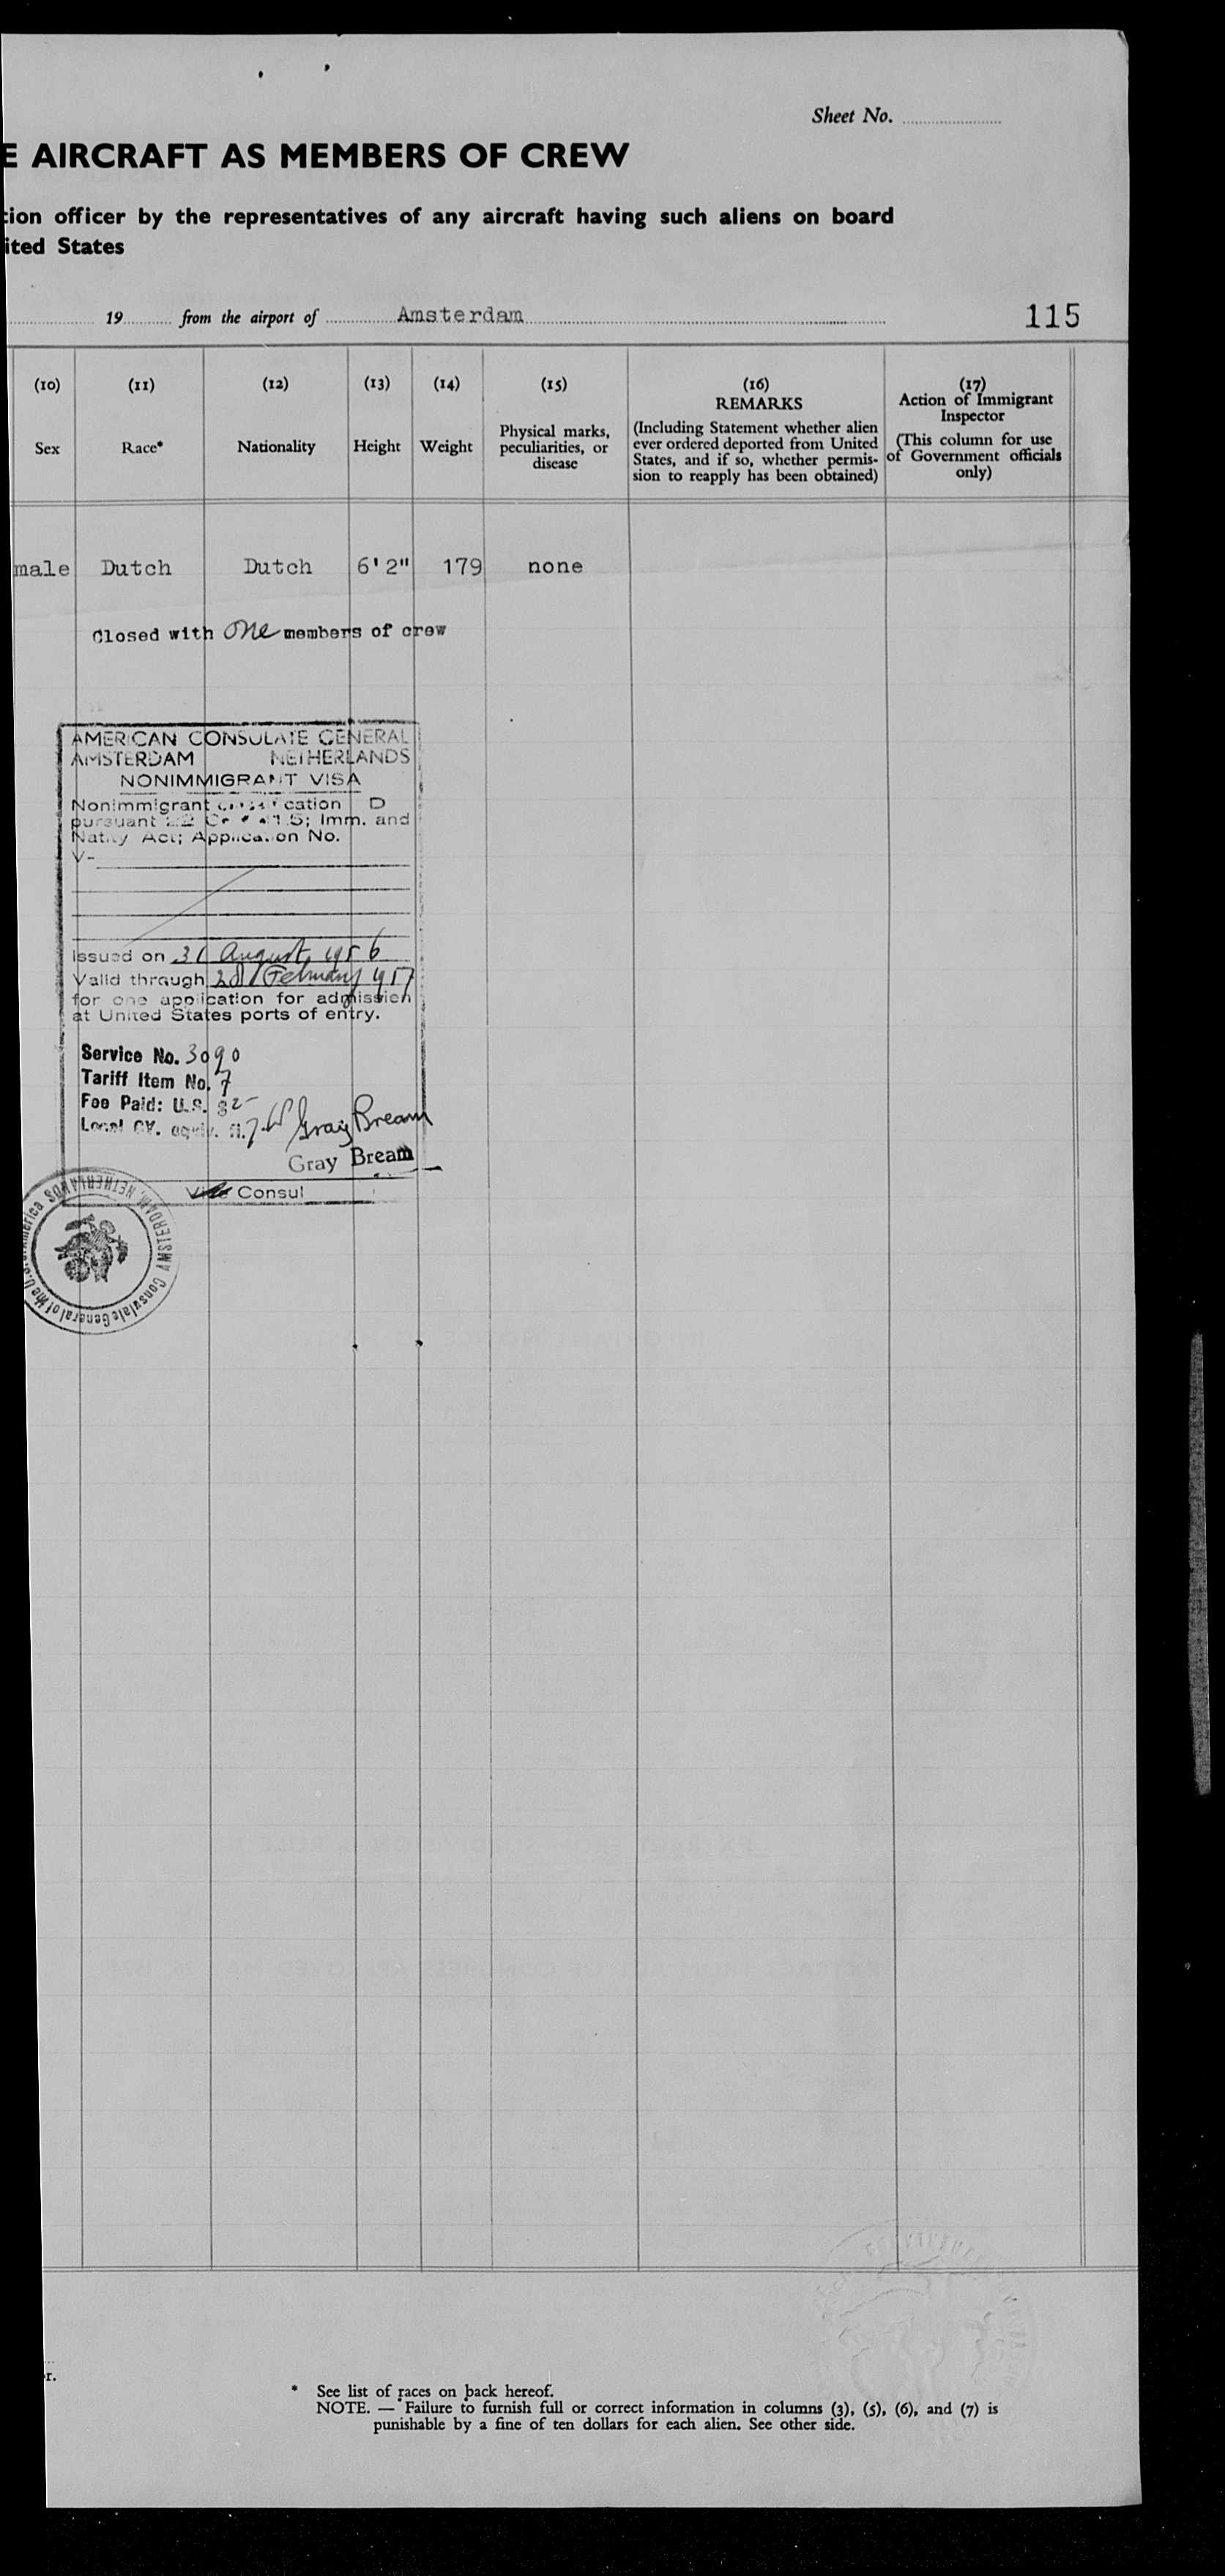 Sheet No.
E AIRCRAFT AS MEMBERS OF CREW
tion officer by the representatives of any aircraft having such aliens on board
ited States
19 from the airport of Amsterdam
115
(10) (11) (12) (13) (14) (15) (16) (17)
Sex Race* Nationality Height Weight
Physical marks,
peculiarities, or
disease
REMARKS
(Including Statement whether alien
ever ordered deported from United
States, and if so, whether permis-
sion to reapply has been obtained)
Action of Immigrant
Inspector
(This column for use
of Government officials
only)
male Dutch Dutch 6'2" 179 none
Closed with one members of crew
AMERICAN CONSULATE GENERAL
AMSTERDAM NETHERLANDS
NONIMMIGRANT VISA
Nonimmigrant D
pursuant Imm. and
Natity Act; Application No.
V-
Issued on 31 August, 1956
Valid through 28 February 1957
for one application for admission
at United States ports of entry.
Service No. 3090
Tariff Item No. 7
Fee Paid: U.S.
Local CY. equiv. fl.
Gray Bream
Gray Bream
Vice Consul
Consulate General of the U.S. of America
AMSTERDAM, NETHERLANDS
r.
* See list of races on back hereof.
NOTE. — Failure to furnish full or correct information in columns (3), (5), (6), and (7) is
punishable by a fine of ten dollars for each alien. See other side.